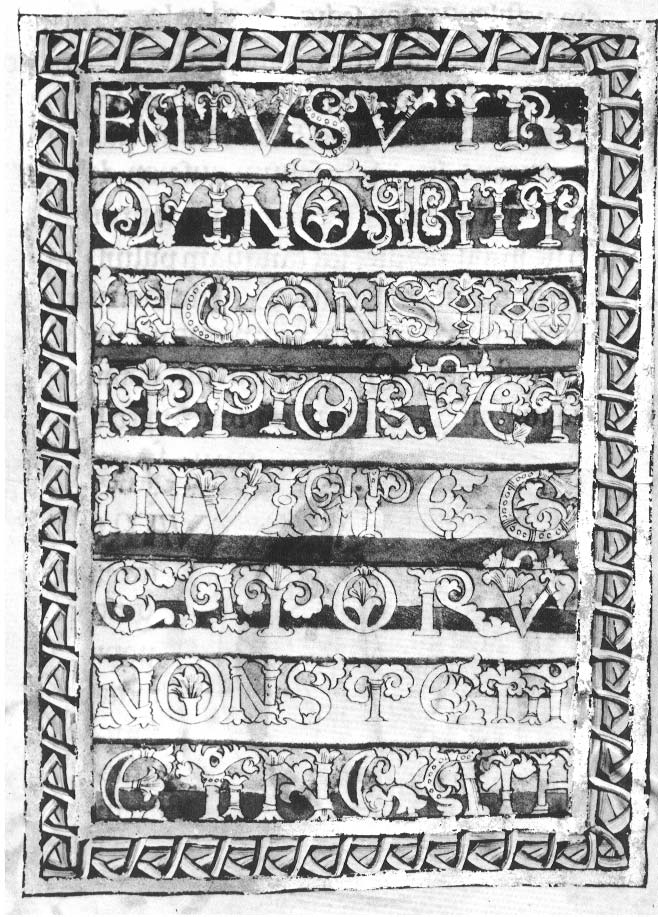 EATVS VIR
QVI NŌ ABIIT
IN CONSILIO
IMPIORV̄ ET
IN VIA PEC
CATORV̄
NON STETIT
ET IN CATH